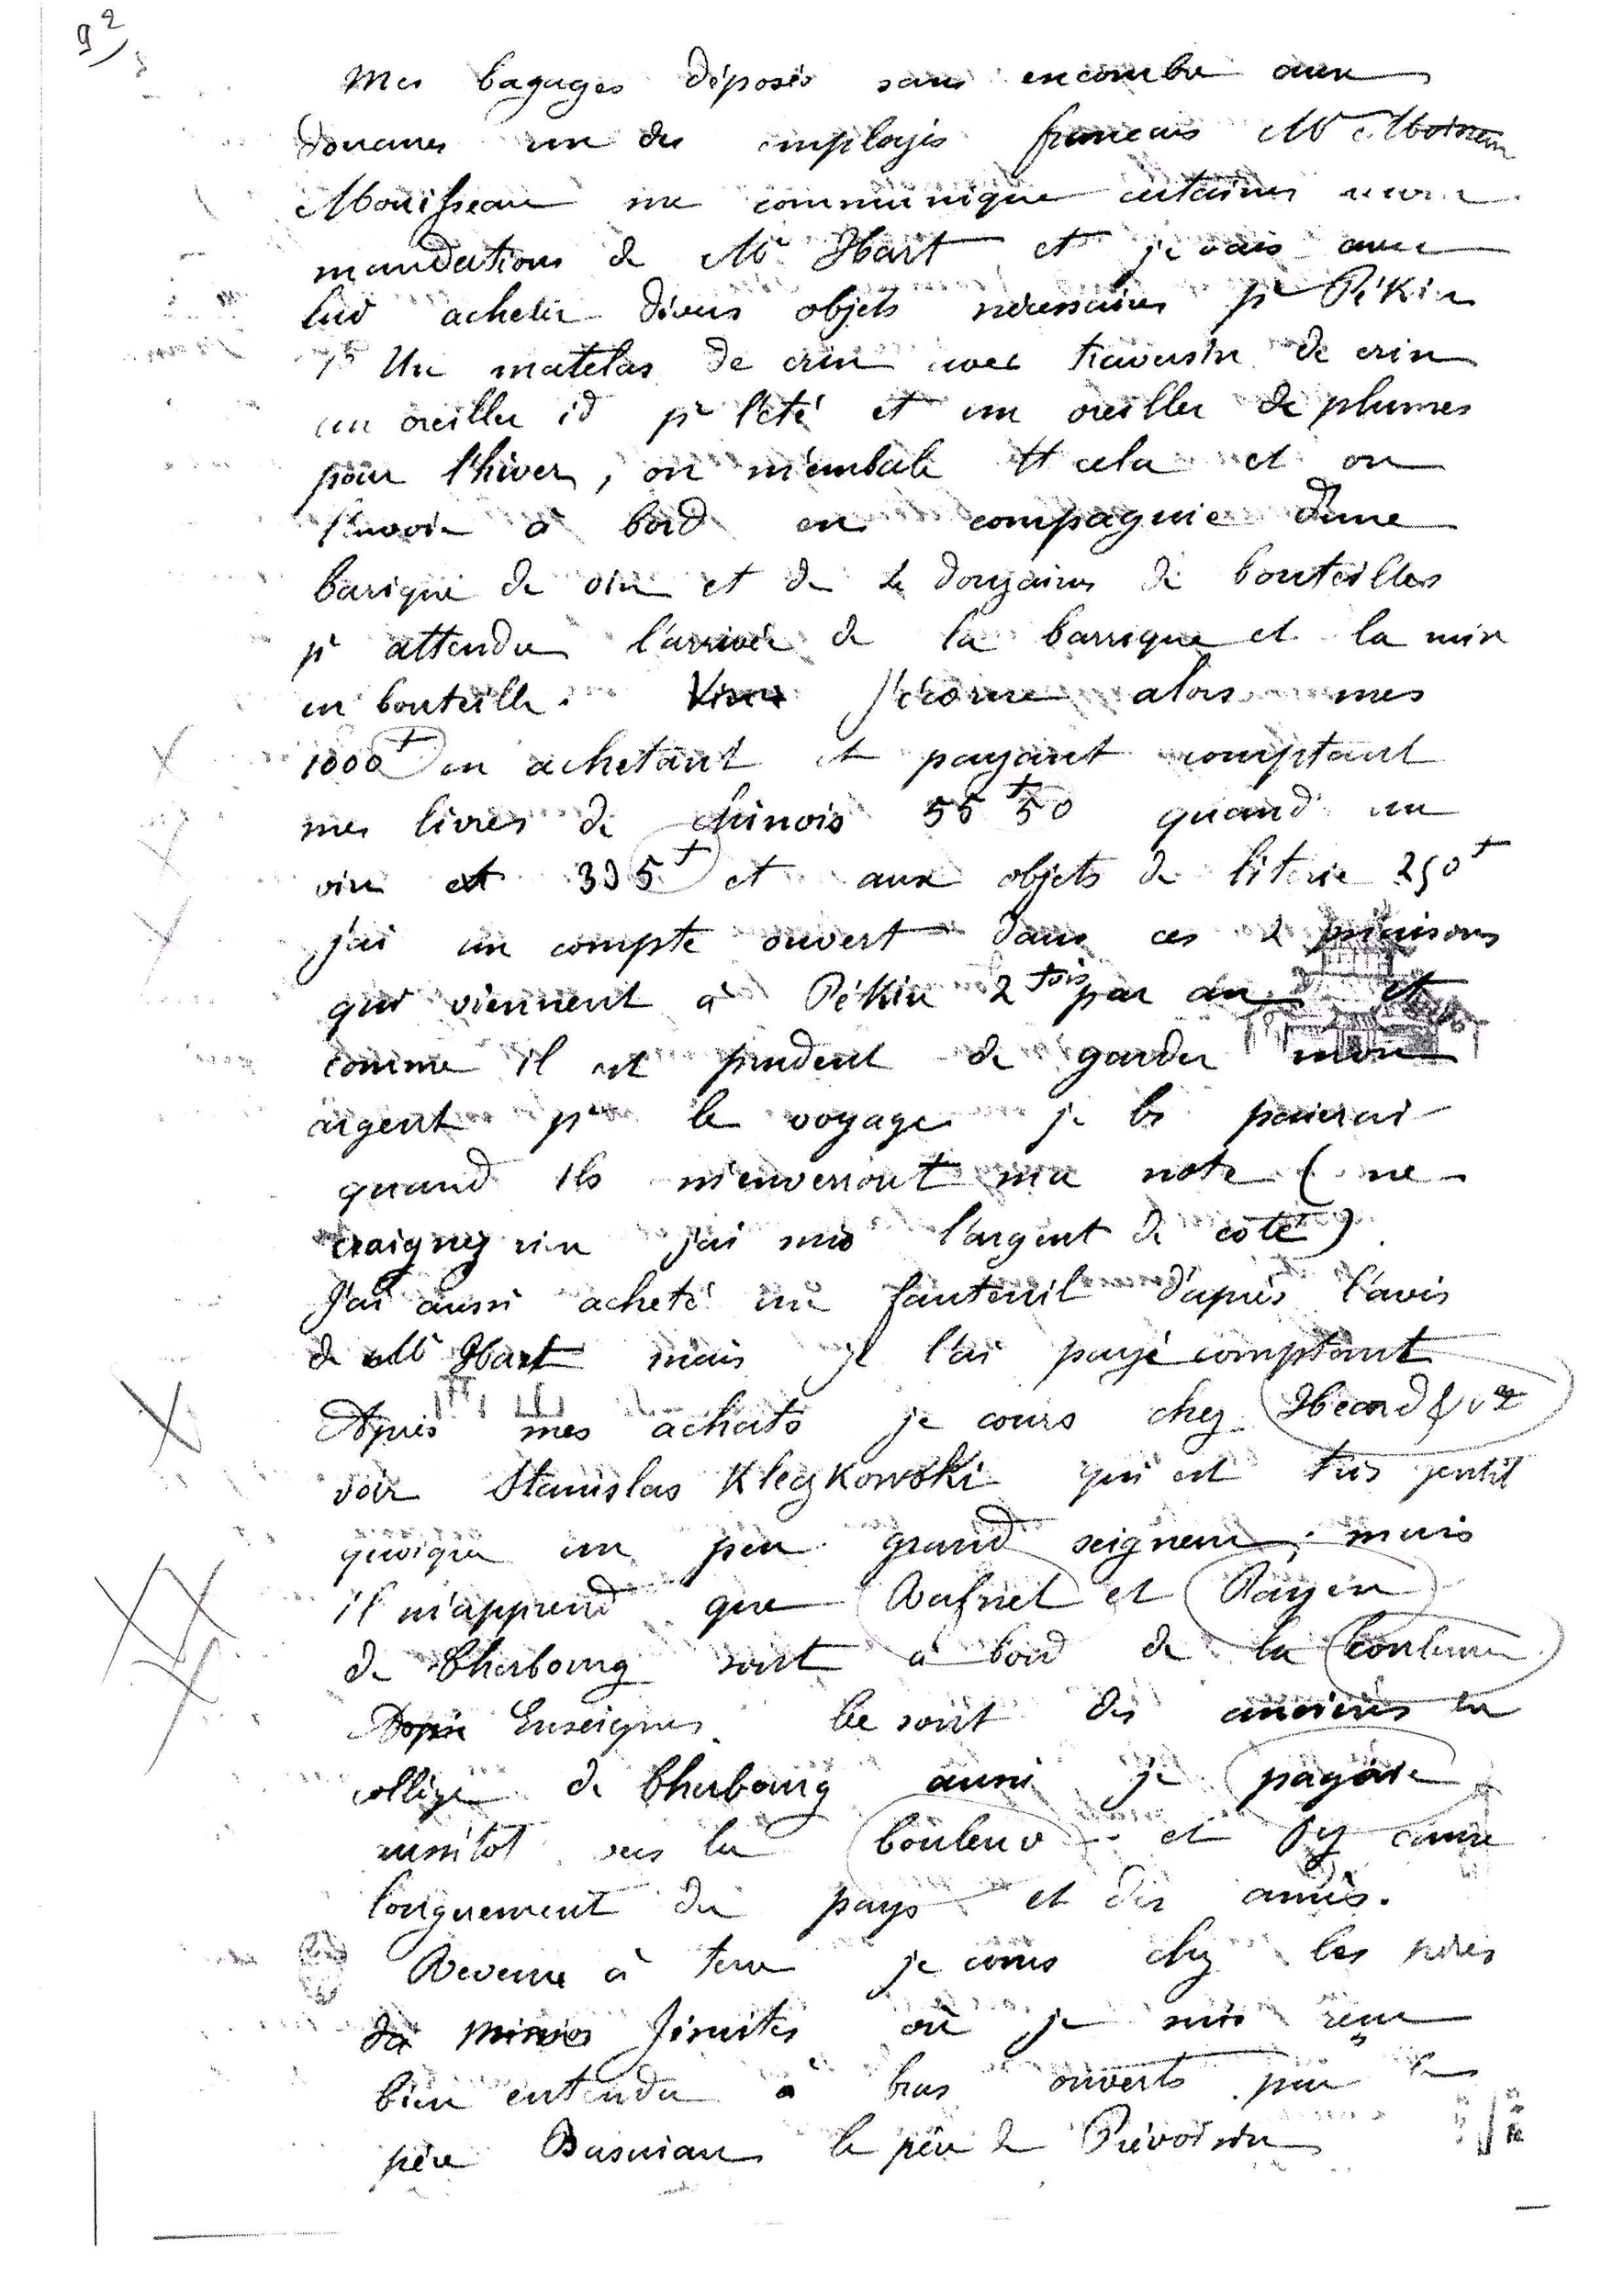 92
Mes bagages déposés sans encombre aux
douanes un des employés francais Mr Moineau
Mouisseau me communique certaines recom
mandations de Mr Hart et je vais avec
lui acheter divers objets nécessaires pr Pékin
1o Un matelas de crin avec traversin de crin
un oreiller id pr l'été et un oreiller de plumes
pour l'hiver, on m'embale tt cela et on
l'envoie à bord en compagnie d'une
barique de vin et de 2 douzaines de bouteilles
pr attendre l'arrivée de la barrique et la mise
en bouteille. J'écorne alors mes
1000 f en achetant et payant comptant
mes livres de chinois 55 f 50 quand au
vin et 395 f et aux objets de literie 250 f
j'ai un compte ouvert dans ces 2 maisons
qui viennent à Pékin 2 fois par an et
comme il est prudent de garder mon
argent pr le voyage je les paierai
quand ils m'enverront ma note (ne
craignez rien j'ai mis l'argent de coté).
J'ai aussi acheté un fauteuil d'après l'avis
de Mr Hart mais je l'ai payé comptant
Après mes achats je cours chez Heard
voir Stanislas Kleczkowski qui est très gentil
quoique un peu grand seigneur; mais
il m'apprend que et Payen
de Cherbourg sont à bord de la
Enseignes. Ce sont des anciens du
collège de Cherbourg aussi je pagaie
aussitot vers la et j'y cause
longuement du pays et des amis.
Revenu à terre je cours chez les pères
Jésuites où je suis reçu
bien entendu à bras ouverts par le
père le père de Prévoisin